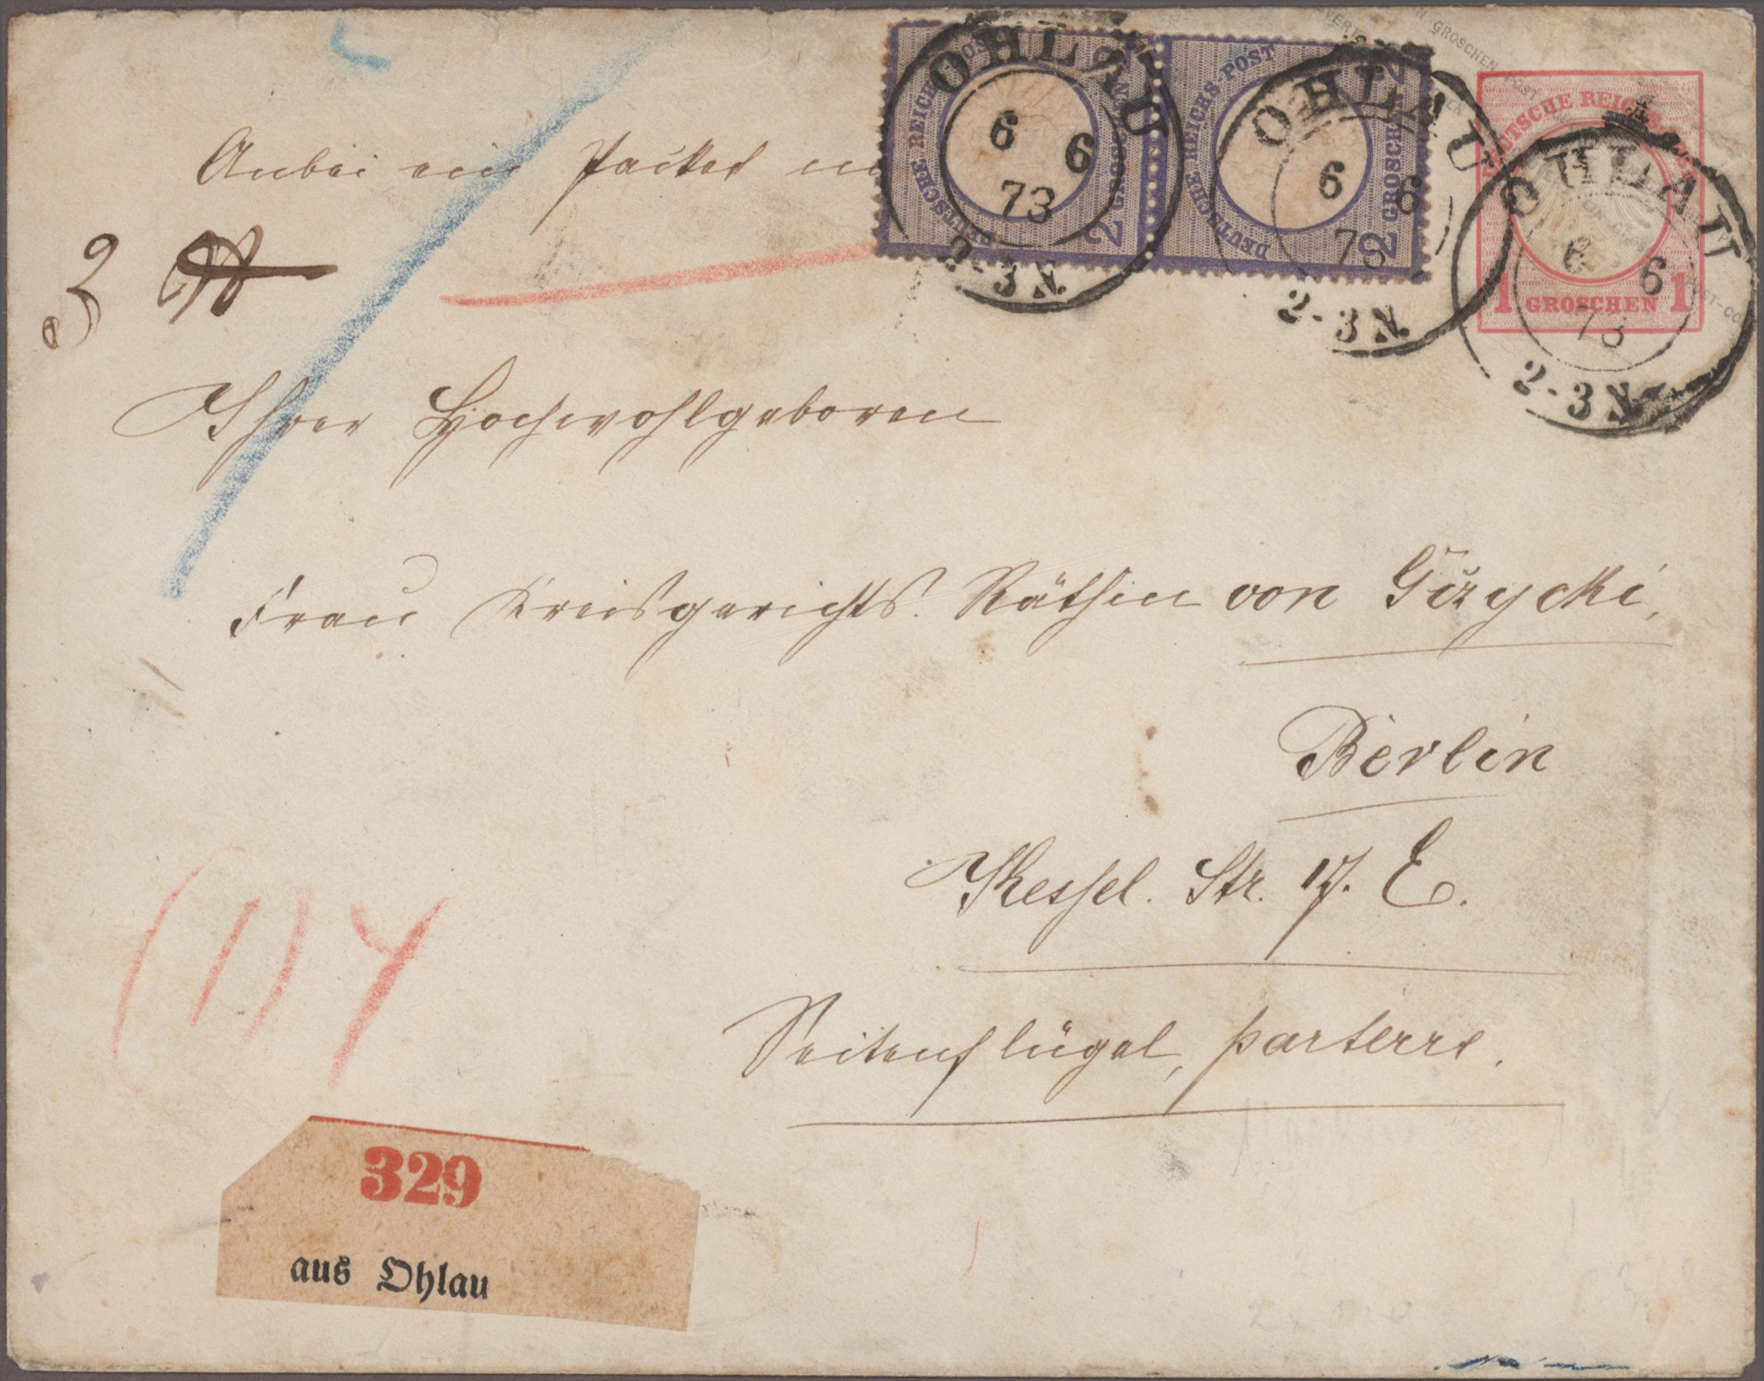 Anbei ein Packet
3 ℔
Ihrer Hochwohlgeboren
Frau Kreisgerichts. Räthin von Giżycki,
Berlin
Kessel. Str. 17. E.
Seitenflügel, parterre.
(1) 4
329
aus Ohlau
DEUTSCHE REICHS-POST
2 GROSCHEN 2
OHLAU
6 6
73
2-3N.
DEUTSCHE REICHS-POST
2 GROSCHEN 2
OHLAU
6 6
73
2-3N.
DEUTSCHE REICHS
1 GROSCHEN 1
OHLAU
6 6
73
2-3N.
GROSCHEN POST